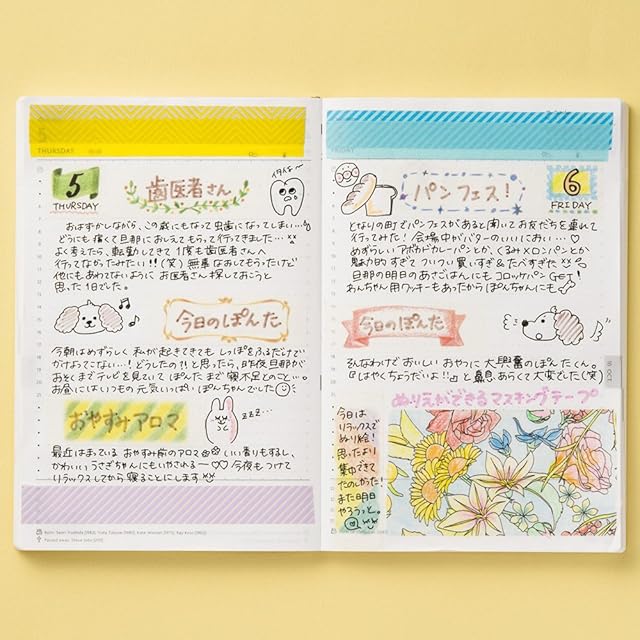 THURSDAY
5
THURSDAY
歯医者さん
イタイよ~
おはずかしながら、この歳にもなって虫歯になってしまい…
どうにも痛くて旦那におしえてもらって行ってきました…××
よく考えたら、転勤してきて1度も歯医者さんへ
行ってなかったみたい!!(笑)無事なおしてもらったけど
他にもあわてないようにお医者さん探しておこうと
思った1日でした。
今日のぽんた
今朝はめずらしく私が起きてきてもしっぽをふるだけで
かけよってこない…!どうしたの?!と思ったら、昨夜旦那が
おそくまでテレビを見ていてぽんたまで寝不足とのこと…。
お昼にはいつもの元気いっぱいぽんちゃんでした
おやすみアロマ
zzz...
最近はまっているおやすみ前のアロマ いい香りもするし、
かわいいうさぎちゃんにもいやされる~♡♡今夜もつけて
リラックスしてから寝ることにします
パンフェス!
6
FRIDAY
となりの町でパンフェスがあると聞いてお友だちを連れて
行ってみた!会場中がバターのいいにおい…♡
めずらしいアボカドカレーパンとか、くるみメロンパンとか
魅力的すぎてついつい買いすぎ&たべすぎた××
旦那の明日のあさごはんにもコロッケパンGET!
あんちゃん用クッキーもあったからぽんちゃんにも
今日のぽんた
そんなわけでおいしいおやつに大興奮のぽんたくん。
『はやくちょうだいよ!!』と鼻あらくて大変でした(笑)
ぬりえができるマスキングテープ
今日は
リラックスで
ぬり絵!
思ったより
集中できて
たのしかった!
また明日
やろうっと。
10 OCT